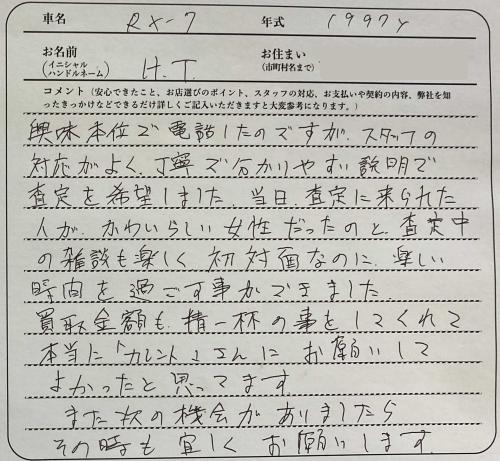 車名 RX-7 年式 1997y
お名前 (イニシャル ハンドルネーム) H.T. お住まい (市町村名まで)
コメント（安心できたこと、お店選びのポイント、スタッフの対応、お支払いや契約の内容、弊社を知
ったきっかけなどできるだけ詳しくご記入いただきますと大変参考になります。）
興味本位で電話したのですが、スタッフの
対応がよく、丁寧で分かりやすい説明で
査定を希望しました。当日、査定に来られた
人が、かわいらしい女性だったのと、査定中
の雑談も楽しく、初対面なのに、楽しい
時間を過ごす事ができました。
買取金額も、精一杯の事をしてくれて
本当に「カレント」さんにお願いして
よかったと思ってます。
また次の機会がありましたら
その時も宜しくお願いします。